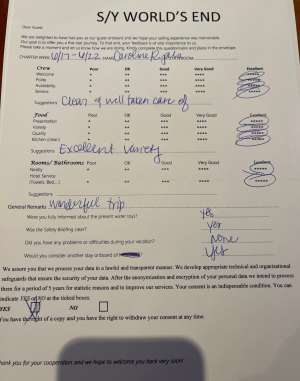 S/Y WORLD'S END
Dear Guest,
We are delighted to have had you as our guest onboard and we hope your sailing experience was memorable.
Our goal is to offer you a five star journey. To that end, your feedback is of any importance to us.
Please take a moment and let us know how we are doing. Kindly complete this questionnaire and place in the envelope.
CHARTER WEEK 6/17-6/22 NAME Caroline
Crew Poor OK Good Very Good Excellent
Welcome * ** *** **** *****
Polite * ** *** **** *****
Availability * ** *** **** *****
Service * ** *** **** *****
Suggestions Clean & well taken care of
Food Poor OK Good Very Good Excellent
Presentation * ** *** **** *****
Variety * ** *** **** *****
Quality * ** *** **** *****
Kitchen (clean) * ** *** **** *****
Suggestions Excellent variety
Rooms/ Bathrooms Poor OK Good Very Good Excellent
Neatly * ** *** **** *****
Hotel Service
(Towels, Bed,...) * ** *** **** *****
Suggestions
General Remarks Wonderful trip
Were you fully informed about the present water toys? yes
Was the Safety Briefing clear? yes
Did you have any problems or difficulties during your vacation? none
Would you consider another stay on board of Yes
We assure you that we process your data in a lawful and transparent manner. We develop appropriate technical and organizational
safeguards that ensure the security of your data. After the anonymization and encryption of your personal data we intend to process
them for a period of 5 years for statistic reasons and to improve our services. Your consent is an indispensable condition. You can
indicate YES or NO at the ticked boxes.
YES NO
You have the right of a copy and you have the right to withdraw your consent at any time.
Thank you for your cooperation and we hope to welcome you back very soon!